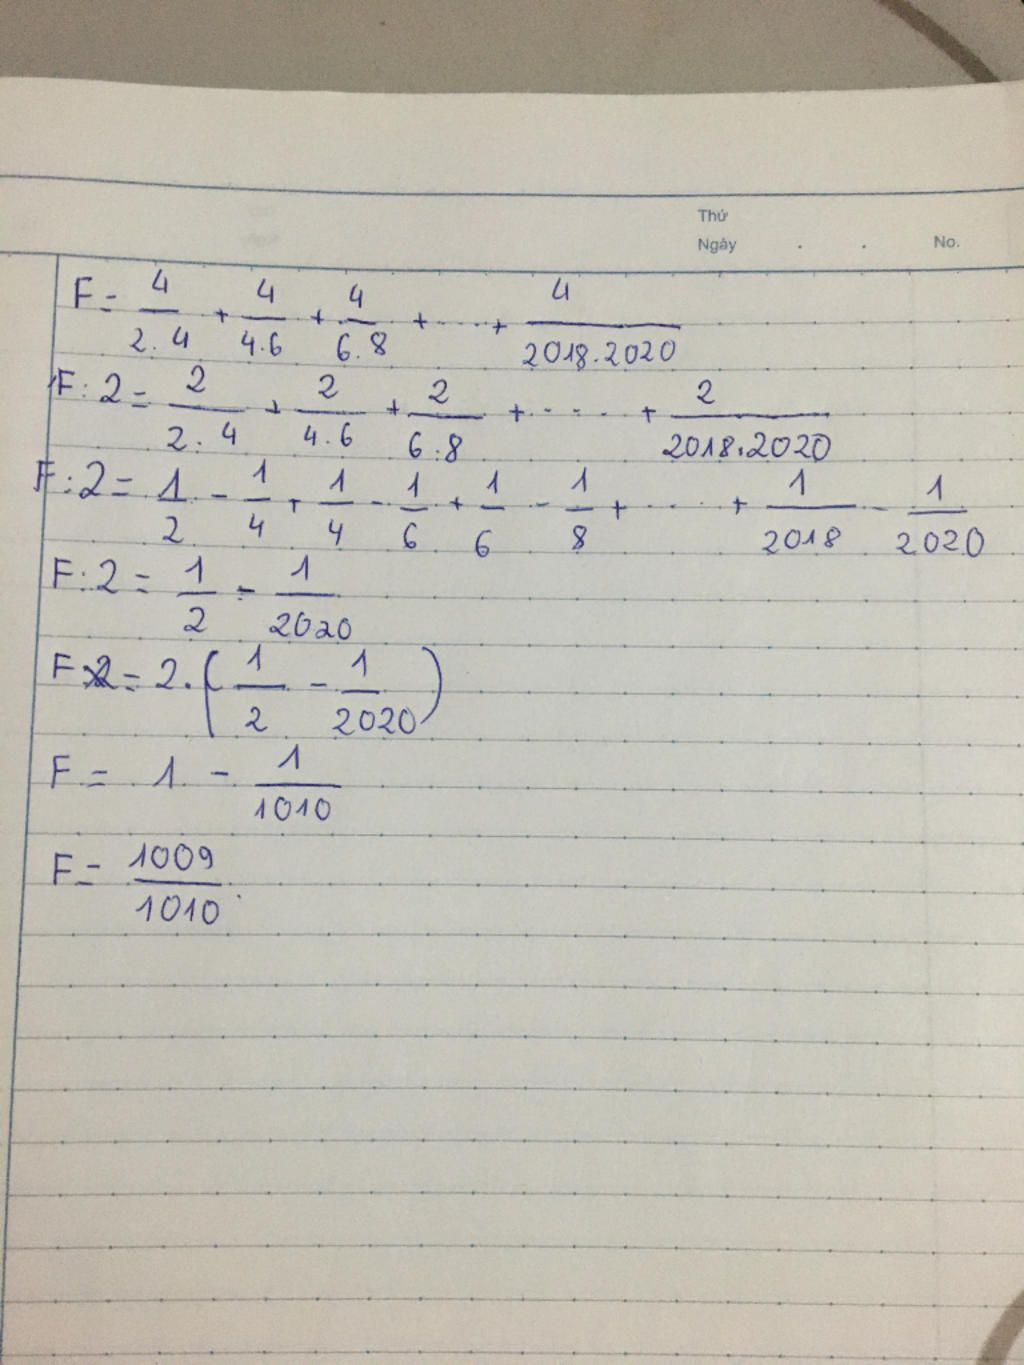 Thứ
Ngày . . No.
F = 4/2.4 + 4/4.6 + 4/6.8 + ..... + 4/2018.2020
F:2 = 2/2.4 + 2/4.6 + 2/6.8 + ..... + 2/2018.2020
F:2 = 1/2 - 1/4 + 1/4 - 1/6 + 1/6 - 1/8 + ..... + 1/2018 - 1/2020
F:2 = 1/2 - 1/2020
F = 2.(1/2 - 1/2020)
F = 1 - 1/1010
F = 1009/1010.